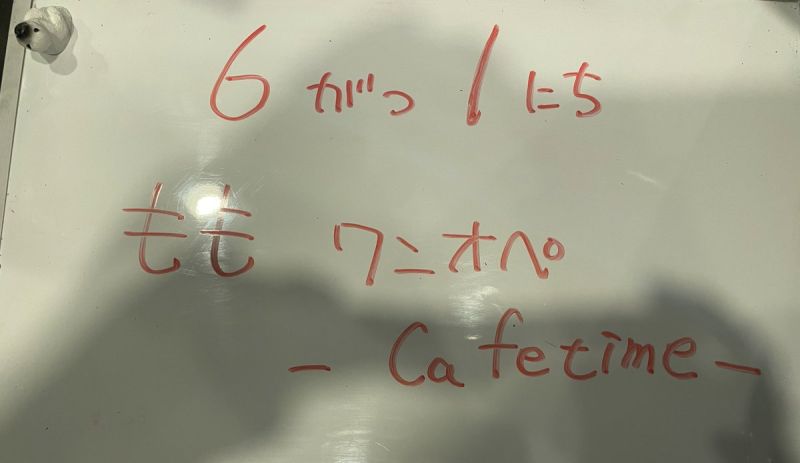 6がつ1にち
もも ワニオペ
- Cafetime -